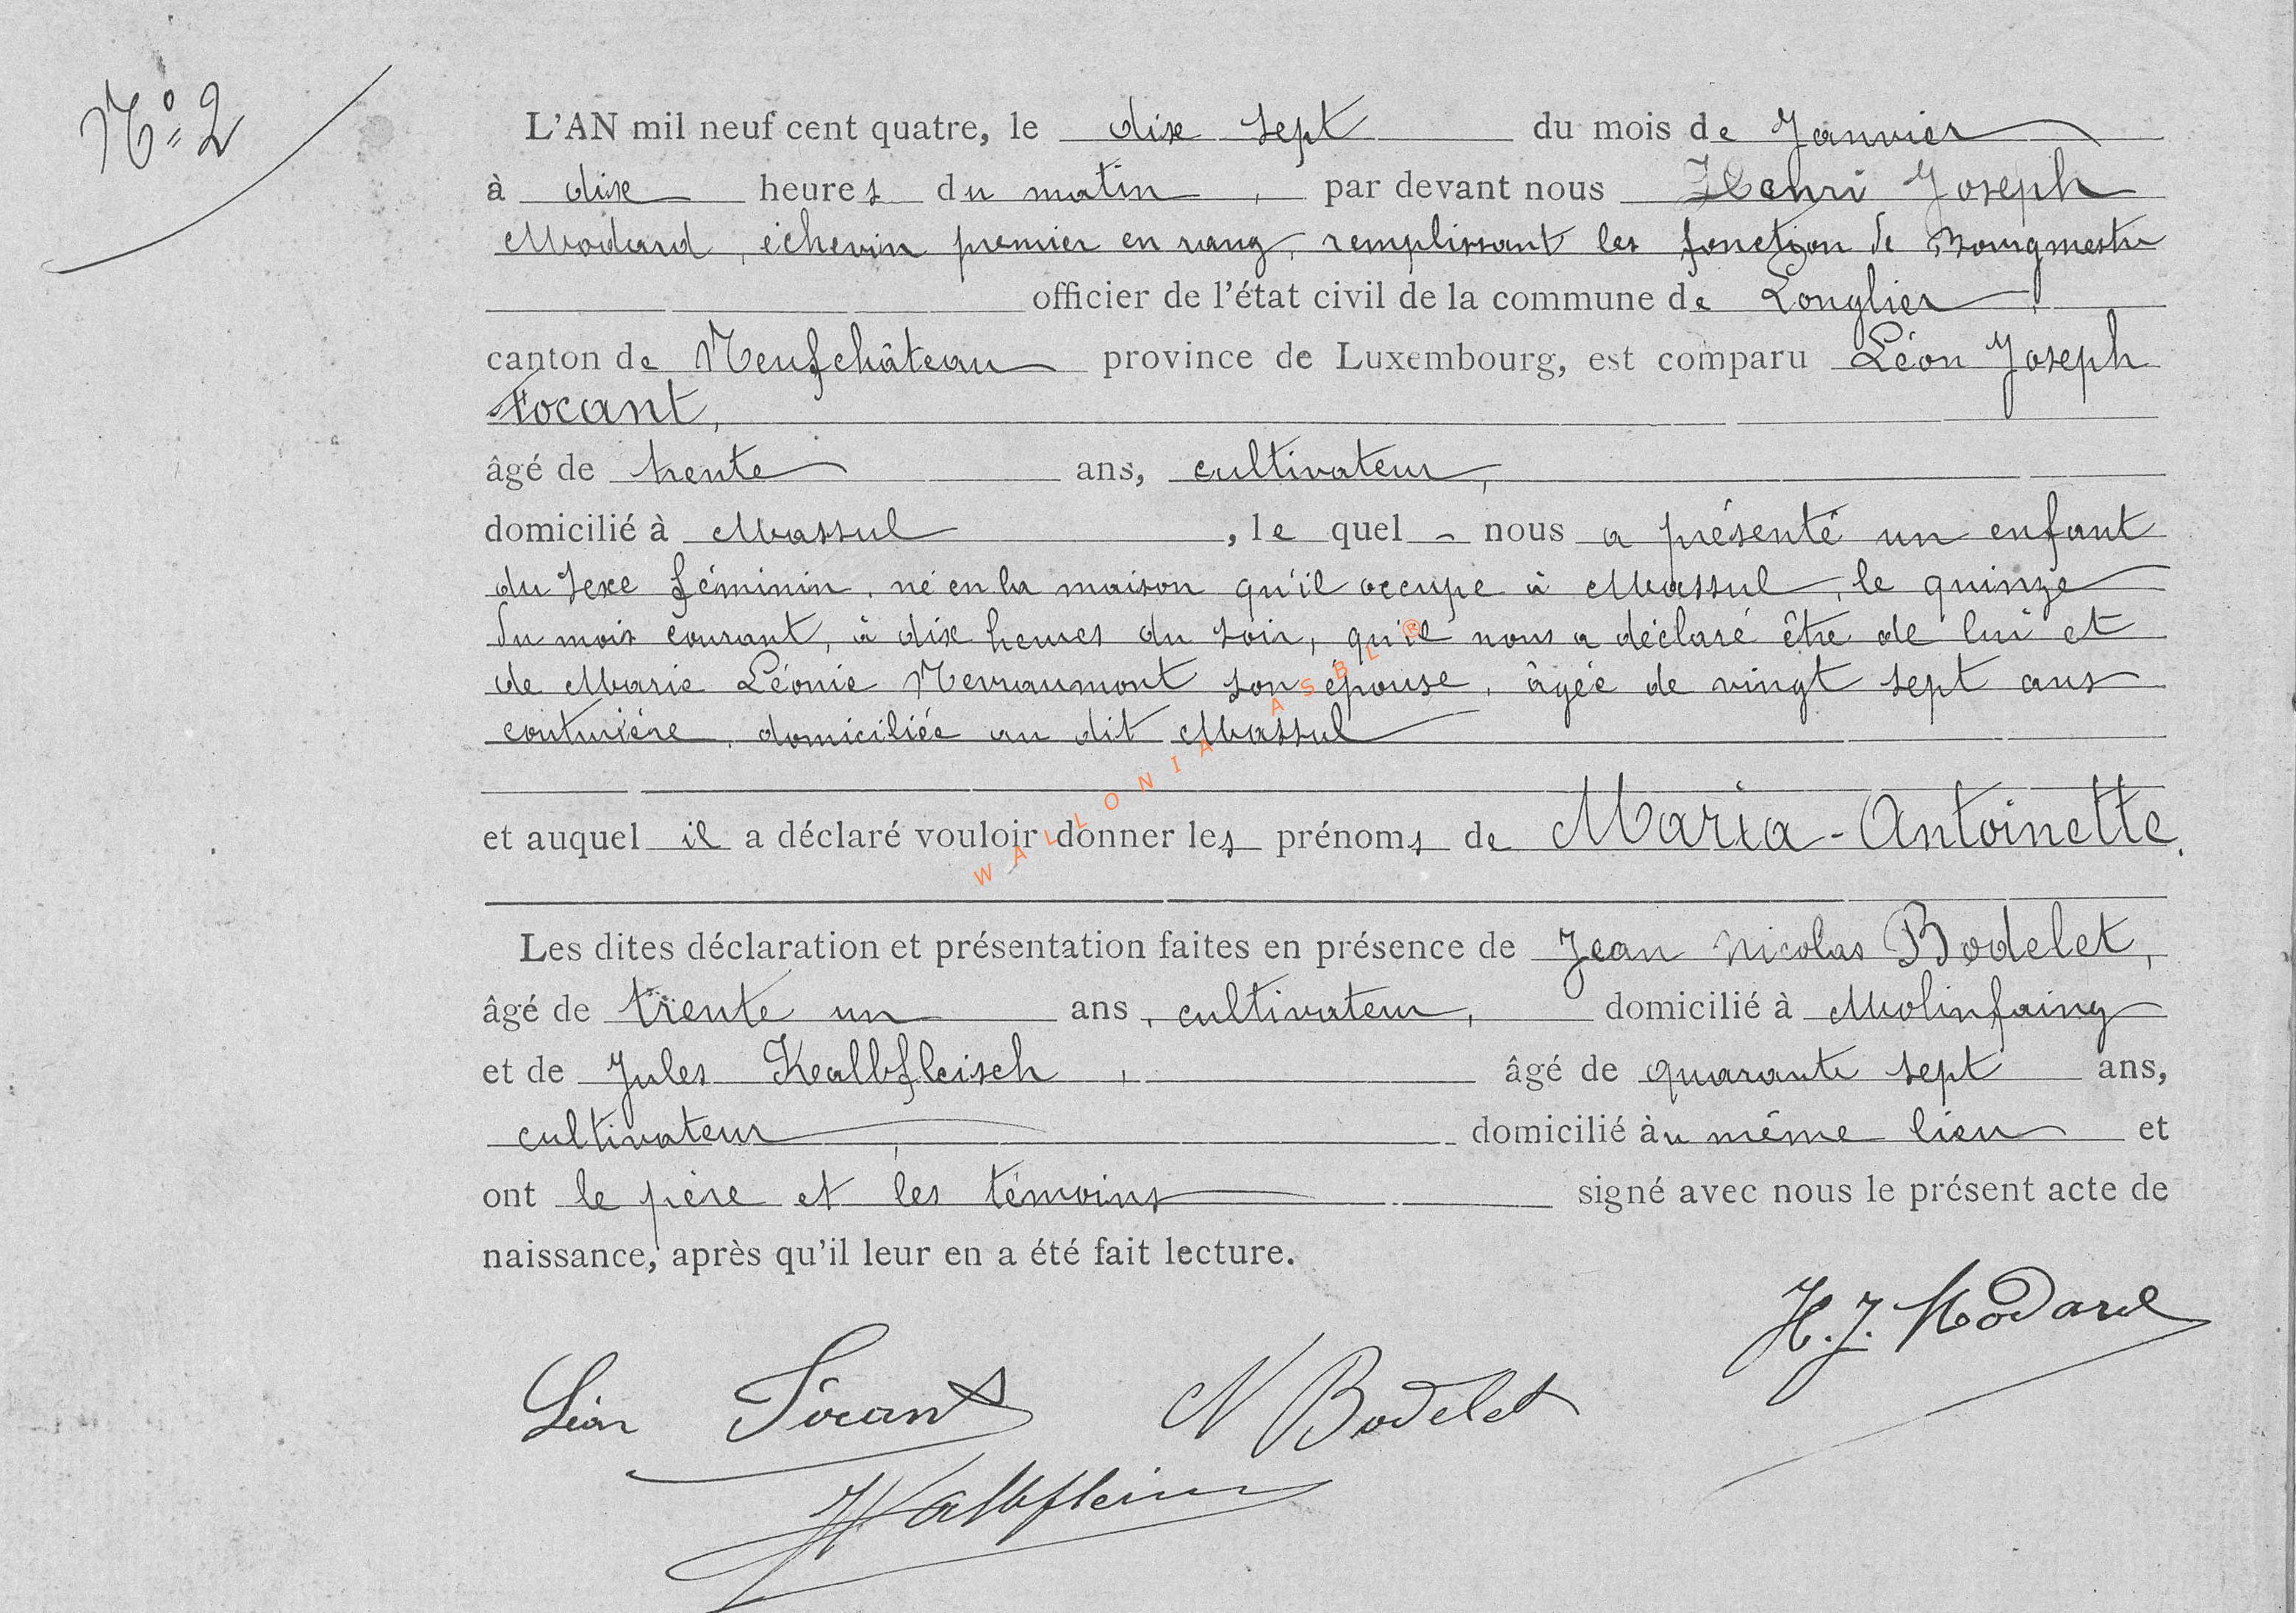 N° 2
L'AN mil neuf cent quatre, le dix sept du mois de Janvier
à dix heures du matin, par devant nous Henri Joseph
Modard, échevin premier en rang, remplissant les fonction de Bourgmestre
officier de l'état civil de la commune de Longlier,
canton de Neufchâteau province de Luxembourg, est comparu Léon Joseph
Focant,
âgé de trente ans, cultivateur,
domicilié à Massul, le quel - nous a présenté un enfant
du sexe féminin, né en la maison qu'il occupe à Massul, le quinze
du mois courant, à dix heures du soir, qu'il nous a déclaré être de lui et
de Marie Léonie Nevraumont son épouse, âgée de vingt sept ans
couturière, domiciliée au dit Massul
et auquel il a déclaré vouloir donner les prénoms de Maria-Antoinette.
Les dites déclaration et présentation faites en présence de Jean Nicolas Bodelet,
âgé de trente un ans, cultivateur, domicilié à Molinfaing
et de Jules Kalbfleisch, âgé de quarante sept ans,
cultivateur, domicilié àu même lieu et
ont le père et les témoins signé avec nous le présent acte de
naissance, après qu'il leur en a été fait lecture.
H. J. Modard
Léon Focant N Bodelet
JKalbfleisch
WALLONIA ASBL ®